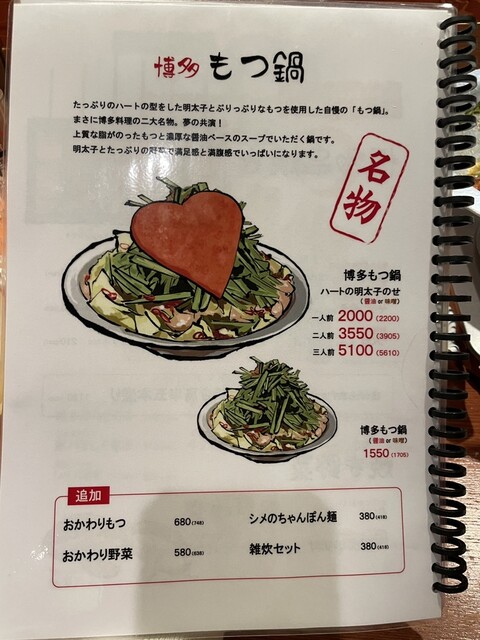 博多 もつ鍋
たっぷりのハートの型をした明太子とぷりっぷりなもつを使用した自慢の「もつ鍋」。
まさに博多料理の二大名物。夢の共演！
上質な脂がのったもつと濃厚な醤油ベースのスープでいただく鍋です。
明太子とたっぷりの野菜で満足感と満腹感でいっぱいになります。
名物
博多もつ鍋
ハートの明太子のせ
(醤油 or 味噌)
一人前 2000 (2200)
二人前 3550 (3905)
三人前 5100 (5610)
博多もつ鍋
(醤油 or 味噌)
1550 (1705)
追加
おかわりもつ 680 (748)
シメのちゃんぽん麺 380 (418)
おかわり野菜 580 (638)
雑炊セット 380 (418)